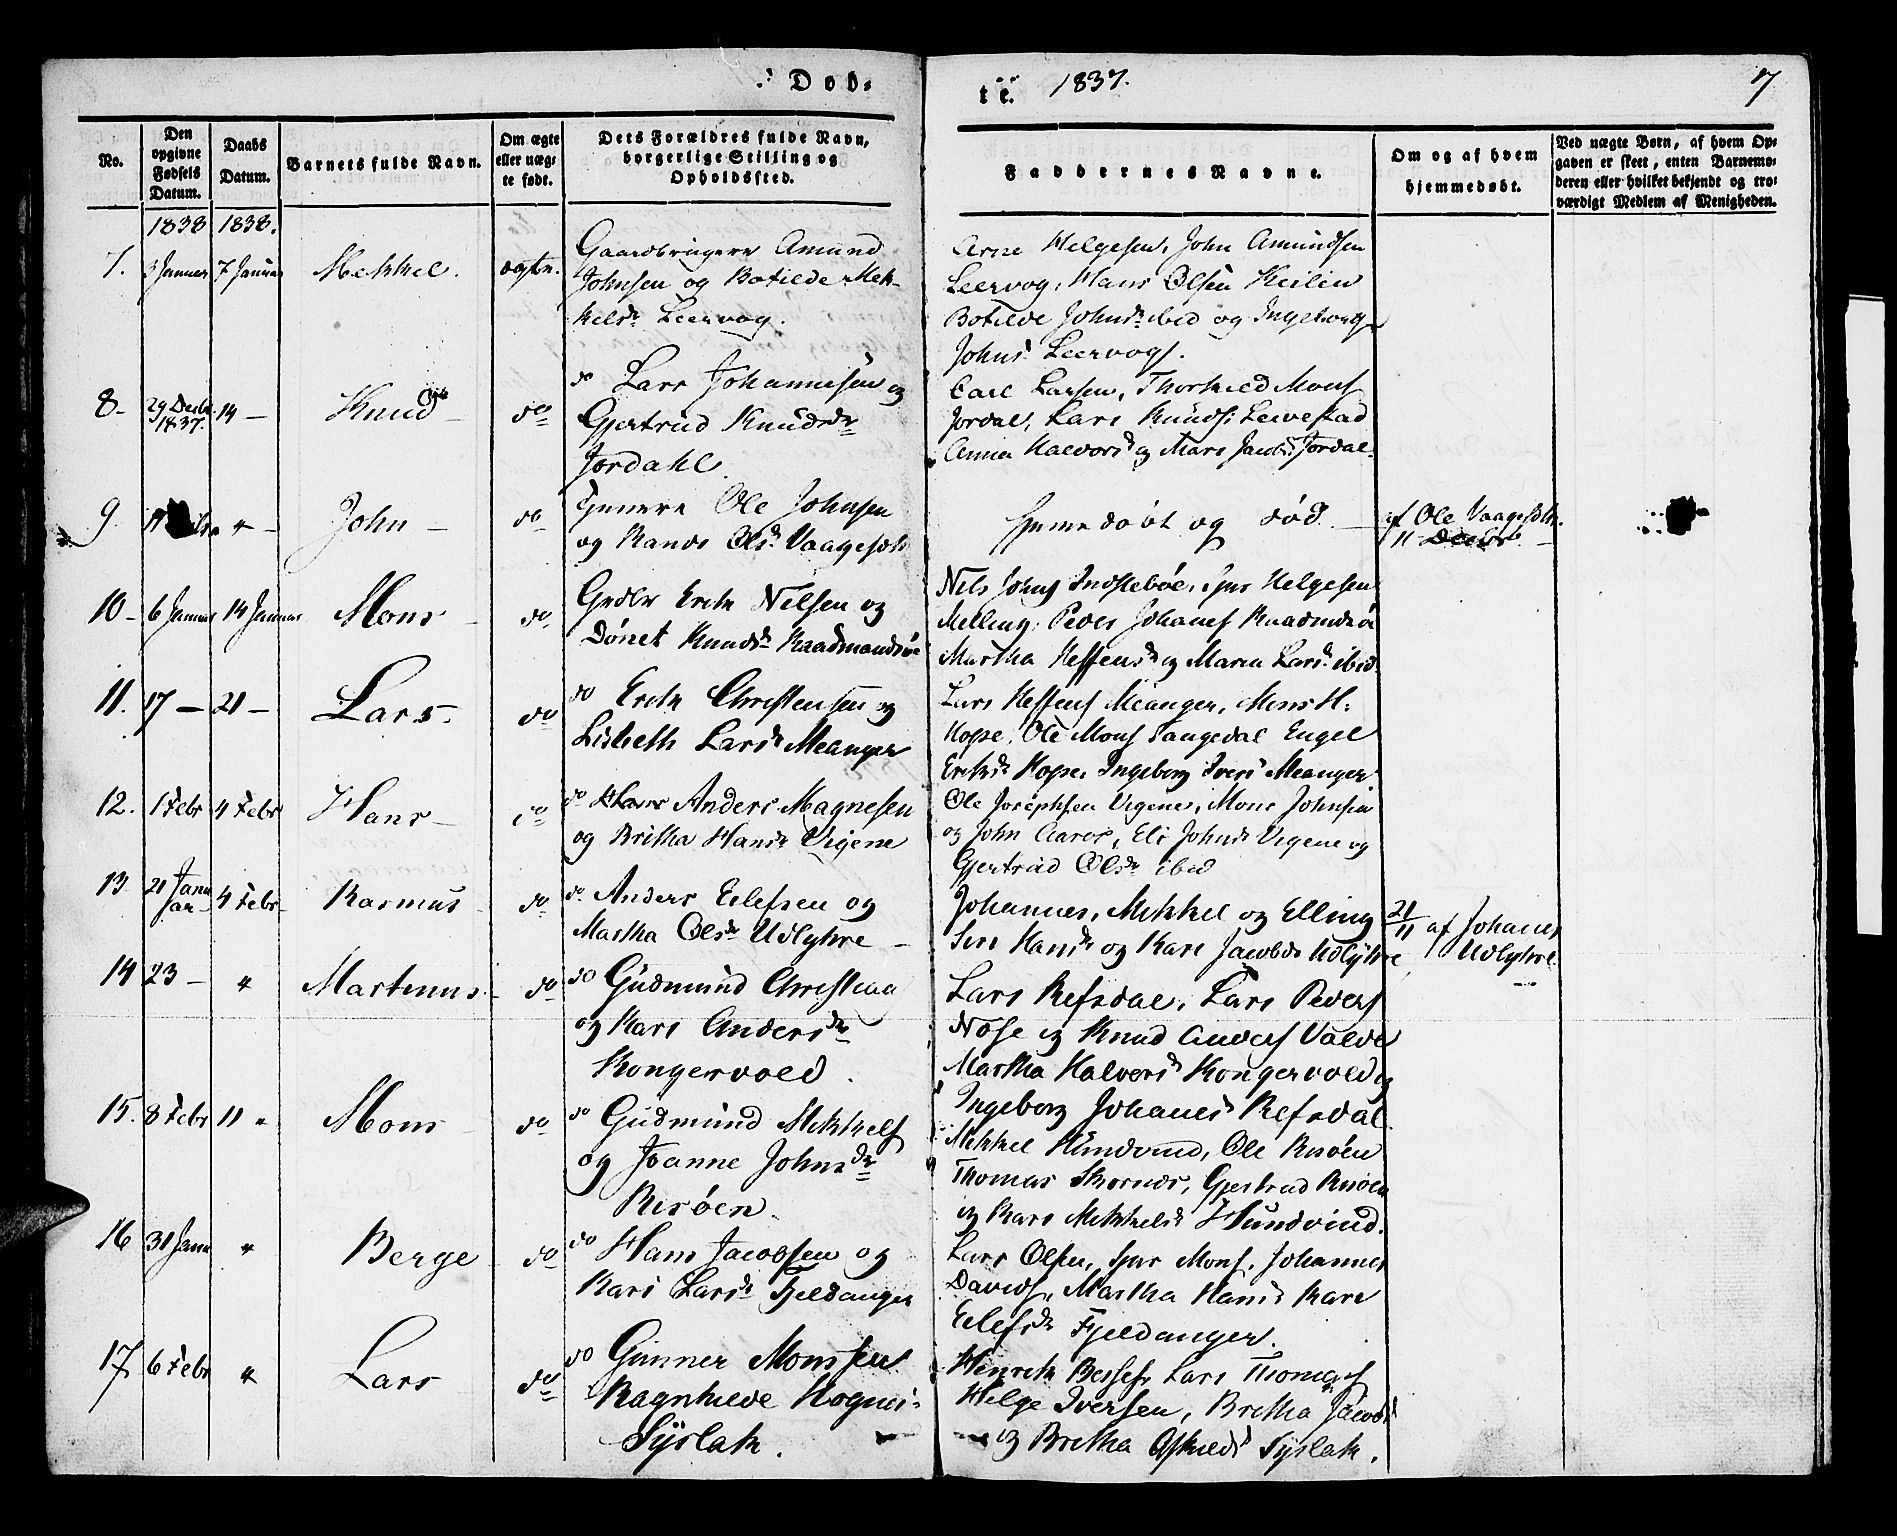 Døb-
te. 1837. 7
No.
Den opgivne Fødsels Datum.
Daabs Datum.
Barnets fulde Navn.
Om ægte eller uægte født.
Dets Forældres fulde Navn, borgerlige Stilling og Opholdssted.
Faddernes Navne.
Om og af hvem hjemmedøbt.
Ved uægte Børn, af hvem Opgaven er skeet, enten Barnemoderen eller hvilket bekjendt og troværdigt Medlem af Menigheden.
1838 1838.
7. 3 Januar 7 Januar Mekkel. ægte.
Gaardbrugere Amund
Johnsen og Botilde Mek-
kelsdr Leervog.
Arne Helgesen, John Amundsen
Leervog, Hans Olsen Keilen
Botilde Johnsdr ibid og Ingeborg
Johnsd. Leervog.
8- 29 Decbr. 1837. 14 - Knud - do
do Lars Johannesen og
Gjertrud Knudsdr
Jordahl.
Carl Larsen, Thorkild Mons
Jordal, Lars Knuds: Leivestad
Anna Halvorsd og Mari Jacobsd: Jordal
9. 11 " - John - do
Ole Johnsen
og Randi Olsdr Vaageseth
hjemedøbt og død. -
af Ole Vaageseth.
11 Decbr. -
10- 6 Januar 14 Januar Mons do
Grdbr Erik Nilsen og
Dönet Knudsdr Raadmandsøe
Nils Johns Indstebøe, Iver Helgesen
Melling, Peder Johanes Raadmdsø
Martha Steffensdr og Maria Larsd. ibid.
11. 17 - 21 - Lars- do
do Erik Christensen og
Lisbeth Larsdr Meanger
Lars Steffens Meanger, Mons H.
Hope, Ole Mons Tangedal Engel
Eriksdr Hope, Ingeborg Ivers Meanger
12. 1 Febr 4 Febr Hans- do
do Anders Magnesen
og Britha Hansdr Vigene
Ole Josephsen Vigene, Mons Johnsen
og John Aarø, Eli Johnsdr Vigene og
Gjertrud Olsdr ibid
13 21 Januar- 4 Febr- Rasmus do
do Anders Eilefsen og
Martha Olsdr Udlykre -
Johannes, Mikkel og Elling
Siri Hansdr og Kari Jacobsdr Udlykre
21/11 af Johanes
Udlykre.
14 23 - " Martinus. do
do Gudmund Christian
og Kari Andersdr
Kongervold.
Lars Refsdal, Lars Peders
Nose og Knud Anders Valde
Martha Halversd Kongervold og
Ingeborg Johanesd Refsdal.
15. 8 Febr 11 " Mons do
do Gudmund Mikkels
og Joanne Johnsdr
Risøen.
Mikkel Hundvind, Ole Risøen
Thomas Skornes, Gjertrud Risøen
og Kari Mikkelsd Hundvind.
16 31 Janu " Berge do
do Hans Jacobsen og
Kari Larsdr Fjeldanger
Lars Olsen, Iver Mons. Johannes
Davids, Martha Hansd Kari
Eilefsdr Fjeldanger.
17. 6 Febr " Lars do
do Gunner Monssen
Ragnhilde Hognes-
Syslak.
Henrik Bess. Lars Thomas
Helge Iversen, Britha Jacobsd
og Britha Askildsd Syslak.